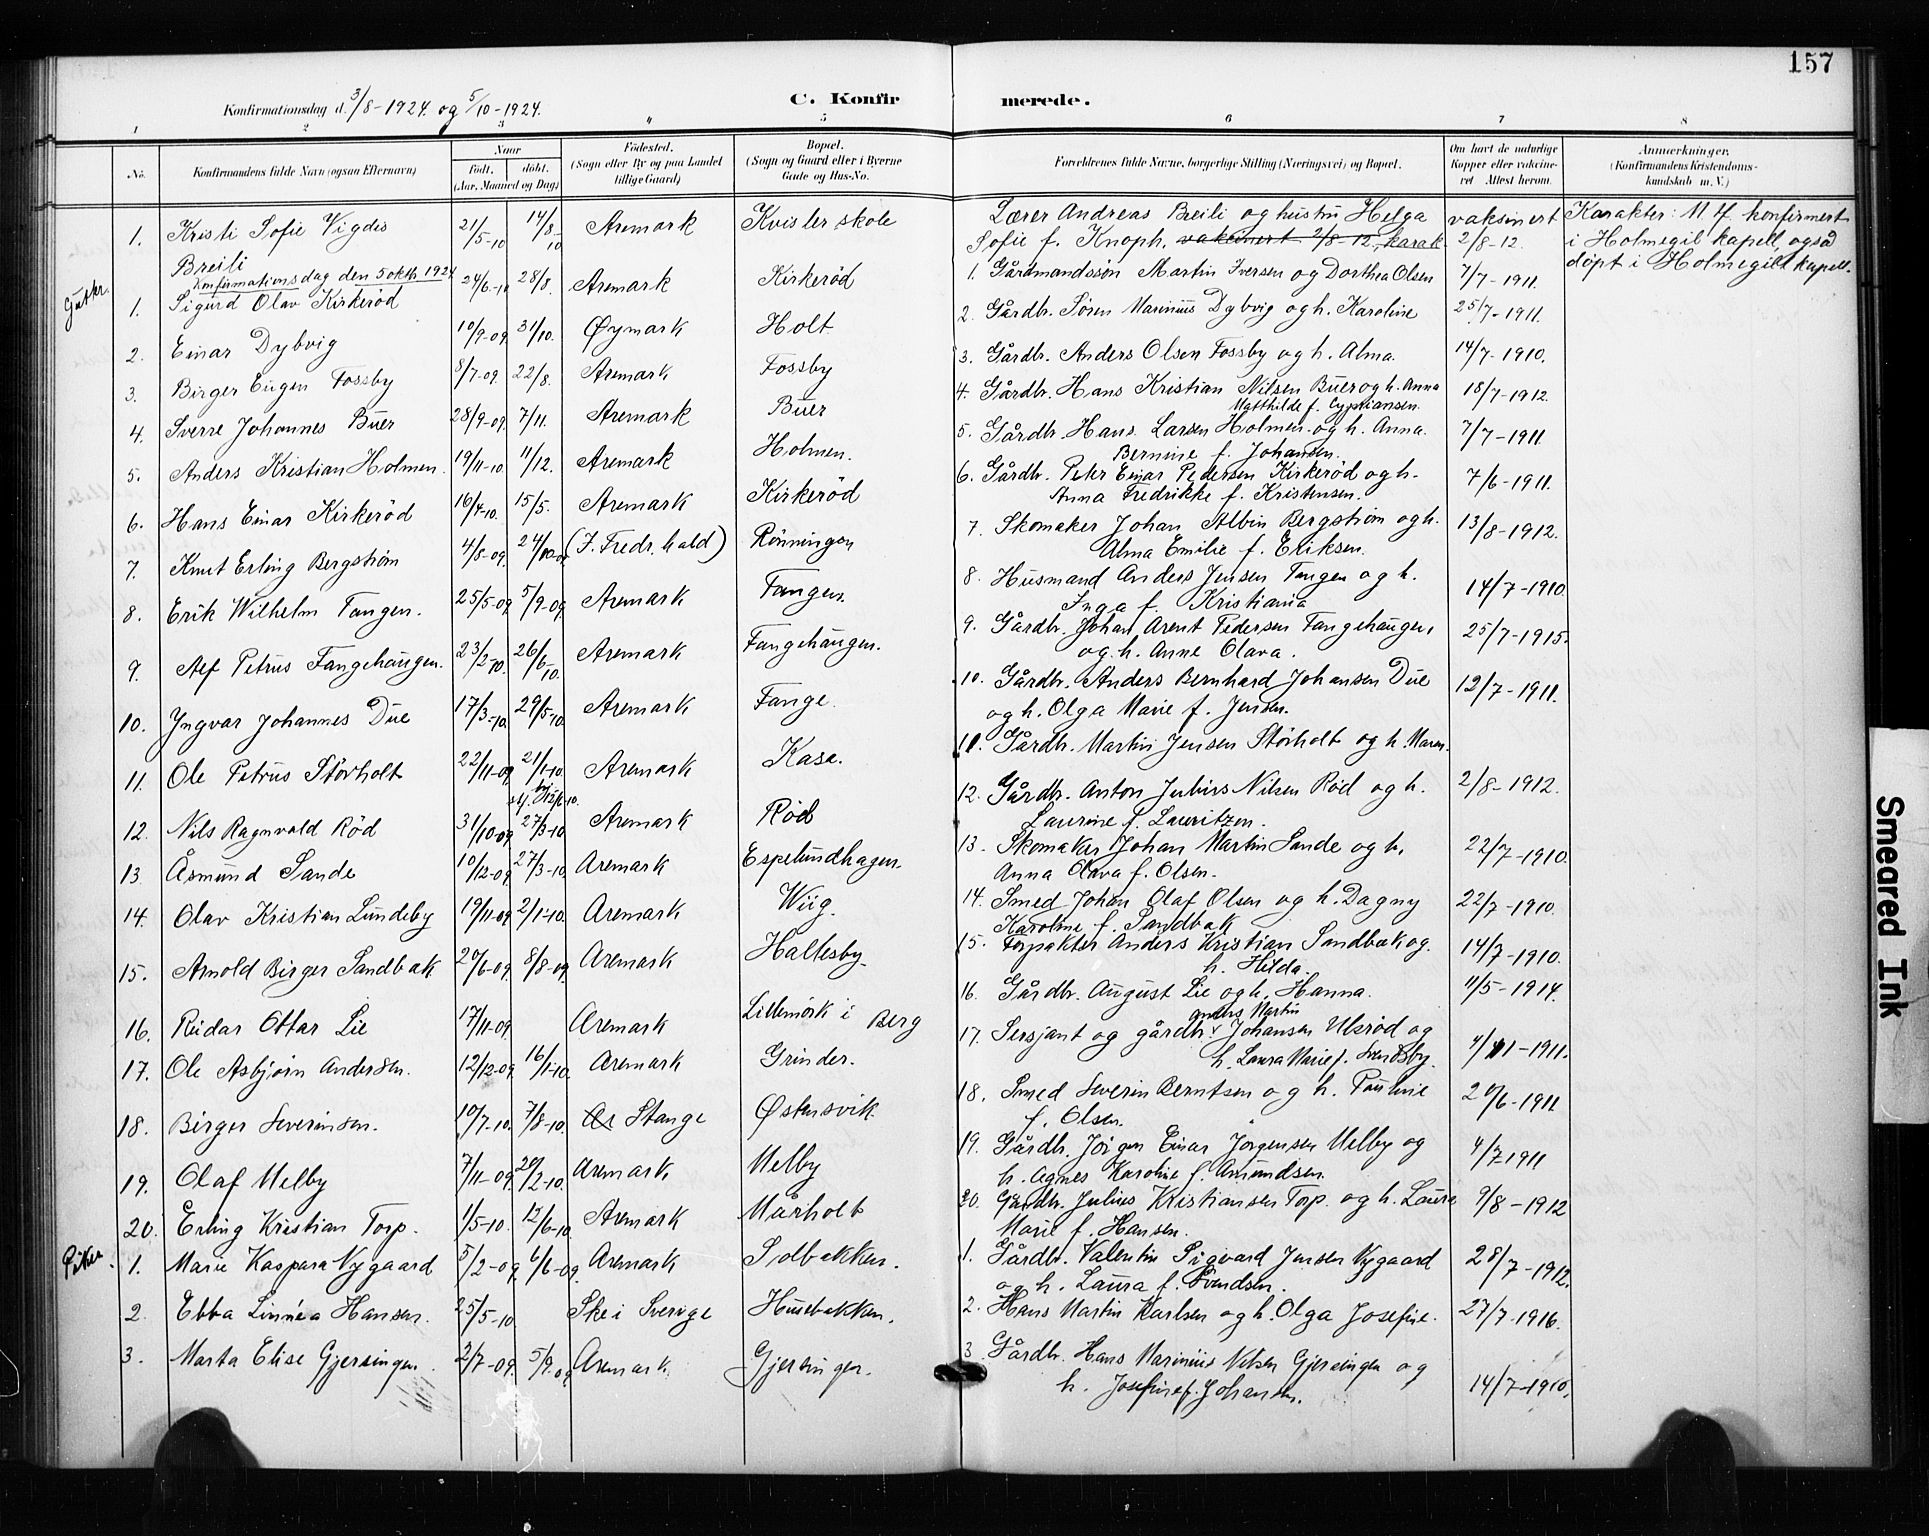 157
Konfirmationsdag d. 3/8-1924. og 5/10-1924.
C. Konfirmerede.
1 2 3 4 5 6 7 8
No.
Konfirmandens fulde Navn (ogsaa Efternavn)
Naar
født. døbt.
(Aar, Maaned og Dag)
Fødested.
(Sogn eller By og paa Landet tillige Gaard)
Bopæl.
(Sogn og Gaard eller i Byerne Gade og Hus-No.
Forældrenes fulde Navne, borgerlige Stilling (Næringsvei) og Bopæl.
Om havt de naturlige Kopper eller vakcineret Attest herom.
Anmærkninger.
(Konfirmandens Kristendomskundskab m. V.)
1. Kristi Sofie Vigdis Breili 21/5-10 14/8-10 Aremark Kvisler skole Lærer Andreas Breili og hustru Helga Sofie f. Knoph. vaksinert 2/8-12, karak. vaksinert 2/8-12. Karakter: M tf. konfirmert i Holmegil kapell, også döpt i Holmegils kapell.
Konfirmationsdag den 5 oktb. 1924
Gutter.
1. Sigurd Olav Kirkeröd 24/6-10 28/8. Aremark Kirkeröd 1. Gårdmandssön Martin Iversen og Dorthea Olsen 7/7-1911.
2. Einar Dybvig 10/9-09. 31/10. Øymark Holt 2. Gårdbr. Søren Marinius Dybvig og h. Karoline 25/7-1911.
3. Birger Eugen Fossby 8/7-09. 22/8. Aremark Fossby 3. Gårdbr. Anders Olsen Fossby og h. Alma. 14/7-1910.
4. Sverre Johannes Buer 28/9-09. 7/11. Aremark Buer 4. Gårdbr. Hans Kristian Nilsen Buer og h. Anna Matthilde f. Cypriansen. 18/7-1912.
5. Anders Kristian Holmen. 19/11-10. 11/12. Aremark Holmen. 5. Gårdbr. Hans Larsen Holmen og h. Anna Bernine f. Johansen. 7/7-1911
6. Hans Einar Kirkeröd 16/4-10. 15/5. Aremark Kirkeröd 6. Gårdbr. Peter Einar Pedersen Kirkeröd og h. Anna Fredrikke f. Kristensen. 7/6-1911.
7. Knut Erling Bergström 4/8-09. 24/10-09 (F. Fredr. hald) Rönningen 7. Skomaker Johan Albin Bergström og h. Alma Emilie f. Eriksen. 13/8-1912.
8. Erik Wilhelm Tangen. 25/5-09 5/9-09. Aremark Tangen. 8. Husmand Anders Jensen Tangen og h. Inga f. Kristiania 14/7-1910.
9. Alf Petrus Fangehaugen. 23/2-10. 26/6-10. Aremark Fangehaugen. 9. Gårdbr. Johan Arent Pedersen Fangehaugen, og h. Anne Olava. 25/7-1915.
10. Yngvar Johannes Due 17/3-10. 29/5-10. Aremark Fange. 10. Gårdbr. Anders Bernhard Johansen Due og h. Olga Marie f. Jensen. 12/7-1911.
11. Ole Petrus Störholt 22/11-09. 21/1-10. Aremark Kasa. 11. Gårdbr. Martin Jensen Störholt og h. Maren.
12. Nils Ragnvald Röd 31/10-09. 27/3-10. Aremark Röd 12. Gårdbr. Anton Julius Nilsen Röd og h. Laurine f. Lauritzen. 2/8-1912.
13. Åsmund Sande 10/12-09. 27/3-10. Aremark Espelundhagen. 13. Skomaker Johan Martin Sande og h. Anna Olava f. Olsen. 22/7-1910.
14. Olav Kristian Lundeby 19/11-09. 2/1-10. Aremark Wiig. 14. Smed Johan Olaf Olsen og h. Dagny Karoline f. Sandbæk 22/7-1910.
15. Arnold Birger Sandbæk 20/6-09. 8/8-09. Aremark Haltesby. 15. Forpakter Anders Kristian Sandbæk og h. Hilda. 14/7-1910.
16. Reidar Ottar Lie 17/11-09. Aremark Lillemörk i Berg 16. Gårdbr. August Lie og h. Hanna. 11/5-1914.
17. Ole Asbjørn Andersen. 12/12-09. 16/1-10. Aremark Grinder. 17. Sersjant og gårdbr. Anders Martin Johansen Ulsröd og h. Laura Marie f. Svendsby. 4/11-1911.
18. Birger Severinsen. 10/7-10. 7/8-10. Ar Stange Østensvik 18. Smed Severin Berntsen og h. Pauline f. Olsen. 20/6-1911
19. Olaf Melby 7/11-09. 20/2-10. Aremark Melby 19. Gårdbr. Jörgen Einar Jörgensen Melby og h. Agnes Karoline f. Amundsen. 4/7-1911
20. Erling Kristian Torp. 1/5-10. 12/6-10. Aremark Mårholt 20. Gårdbr. Julius Kristiansen Torp. og h. Laura Marie f. Hansen. 9/8-1912
Piker.
1. Marie Kaspara Nygaard 5/2-09. 6/6-09. Aremark Solbakken. 1. Gårdbr. Valentin Sigvard Jensen Nygaard og h. Laura f. Svendsen. 28/7-1912.
2. Ebba Linnéa Hansen. 25/5-10. Ske i Sverige Husebakken. 2. Hans Martin Karlsen og h. Olga Josefine. 27/7-1916.
3. Marta Elise Gjersingen. 2/7-09. 5/9-09. Aremark. Gjersingen. 3. Gårdbr. Hans Marinius Nilsen Gjersingen og h. Josefine f. Johansen. 14/7-1910.
Smeared Ink